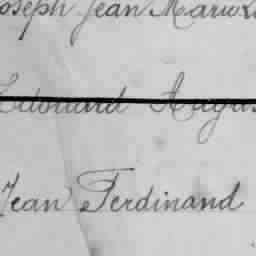 Joseph Jean Marie
Edouard Augus
Jean Ferdinand